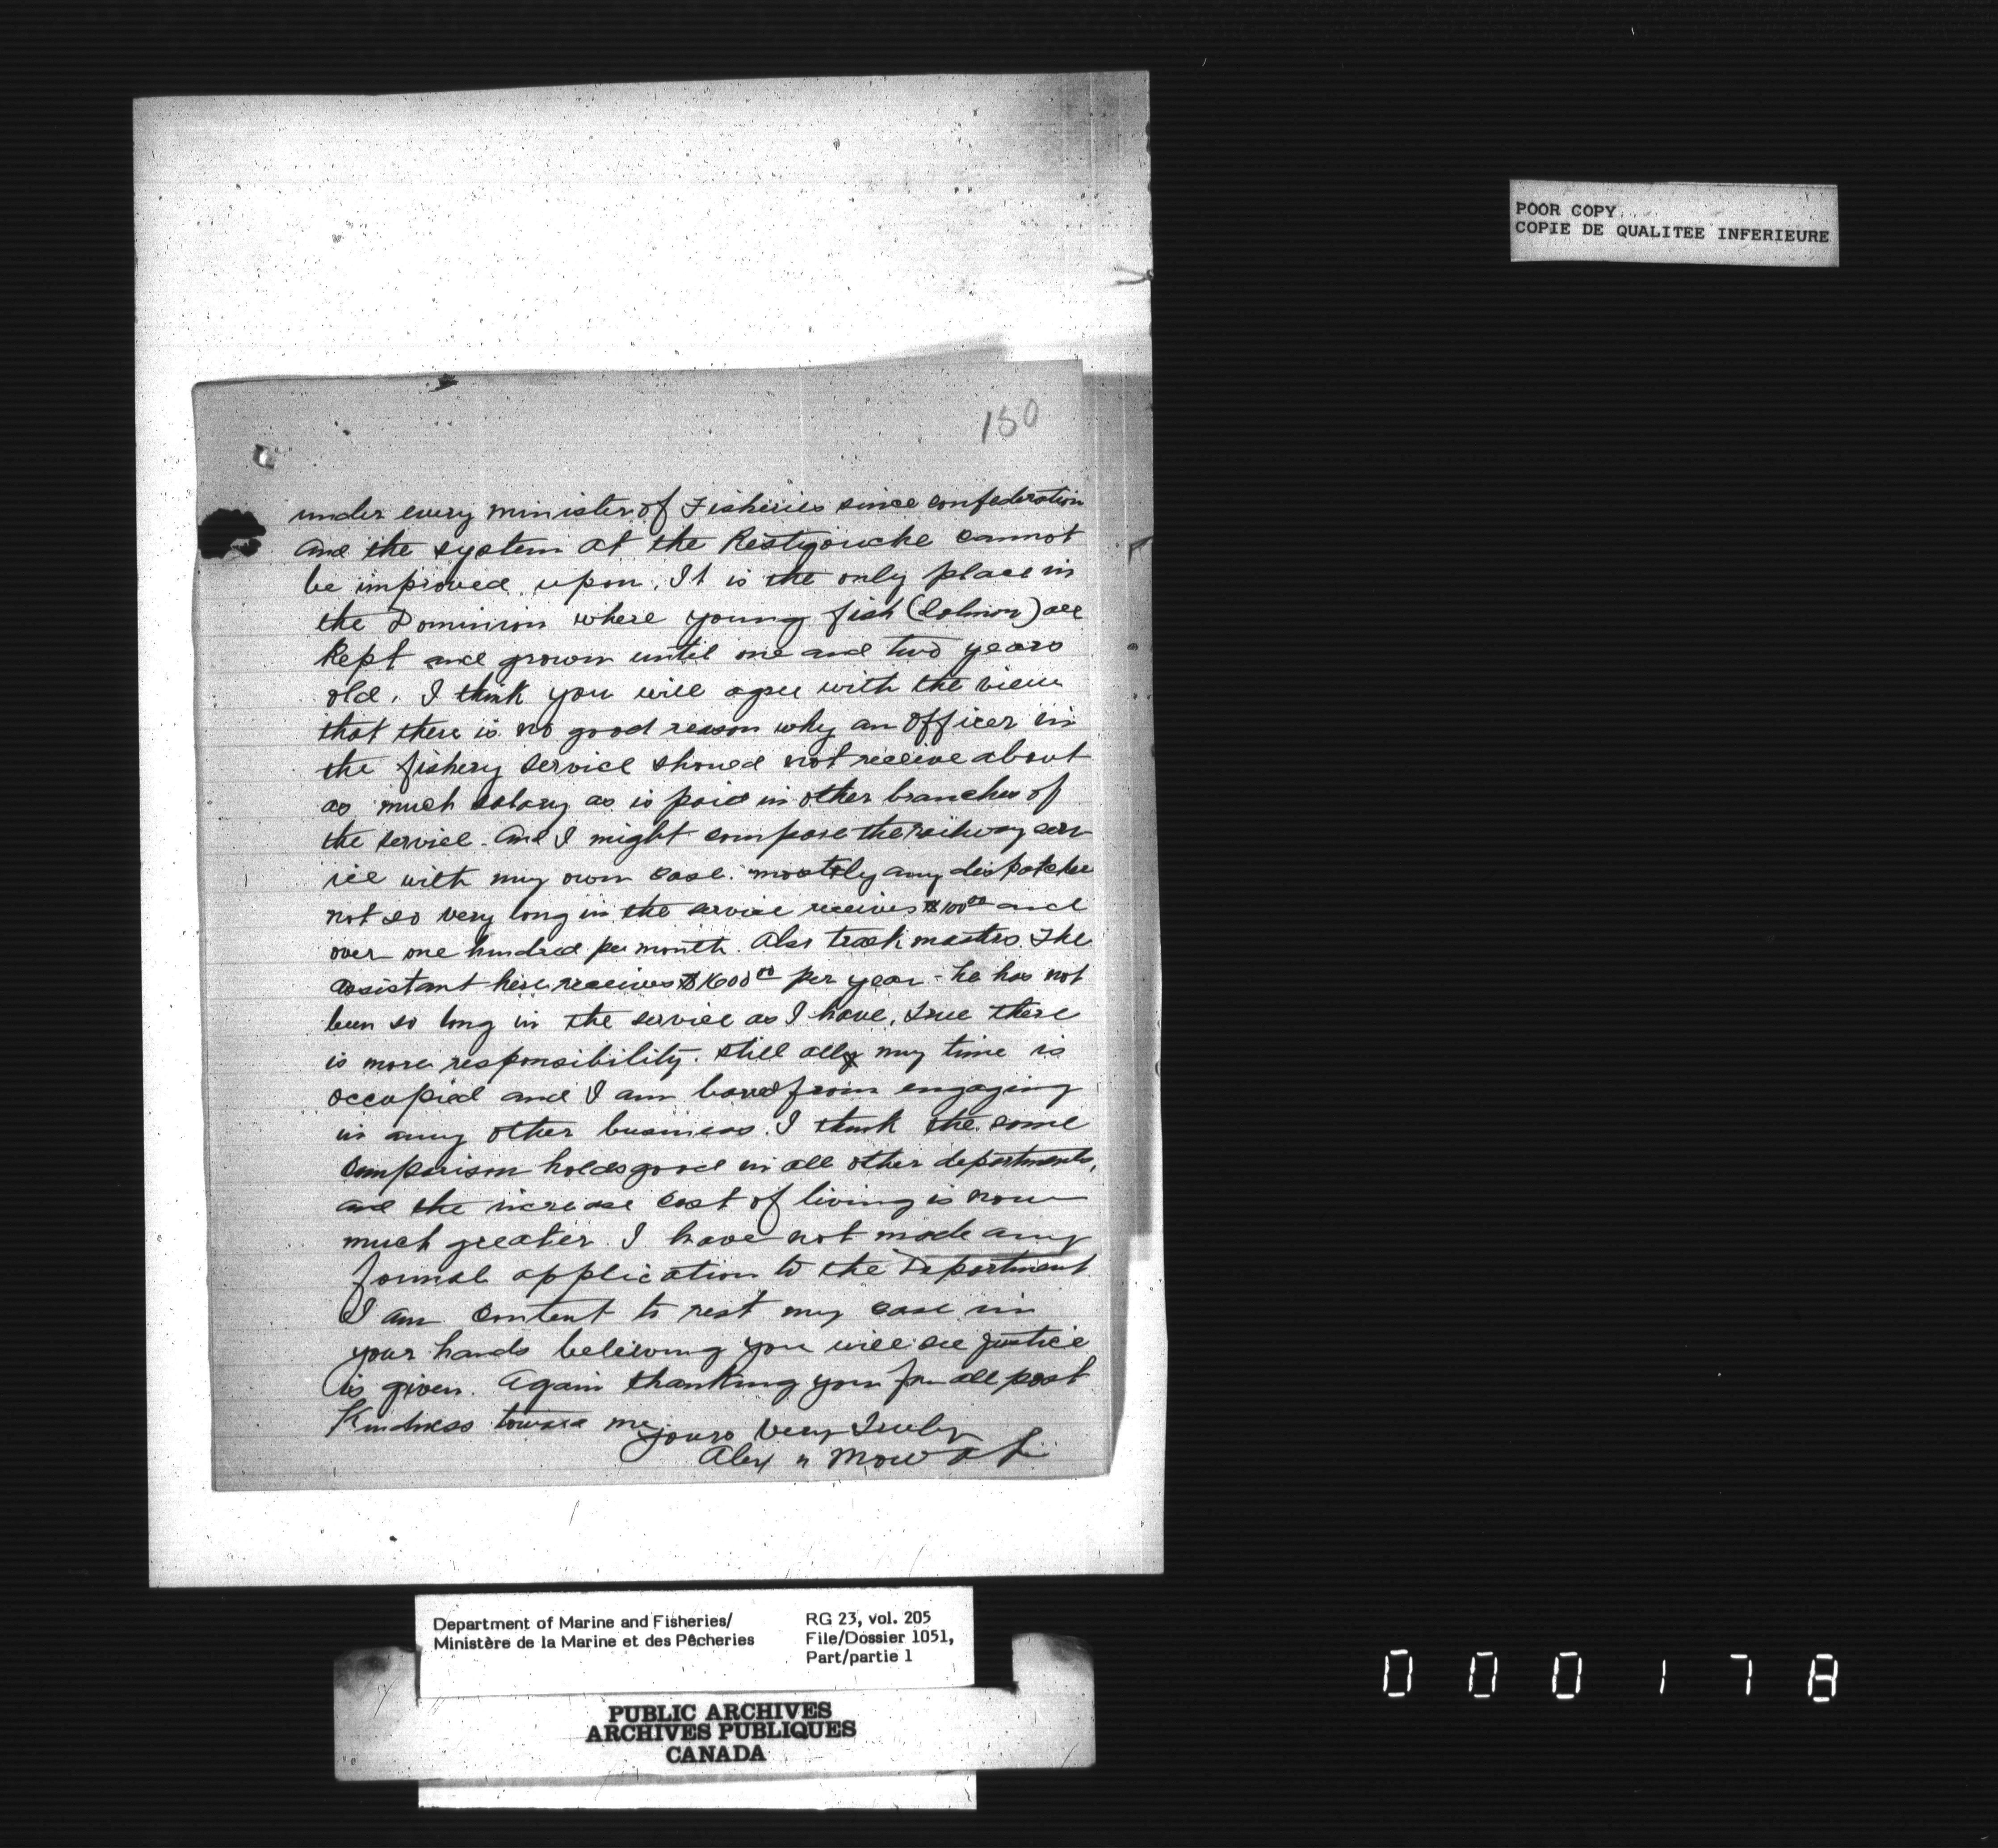 150
under every minister of Fisheries since confederation
and the system at the Restigouche cannot
be improved upon. It is the only place in
the Dominion where young fish (Salmon) are
Kept and grown until one and two years
old. I think you will agree with the view
that there is no good reason why an officer in
the fishery service should not receive about
as much salary as is paid in other branches of
the service. And I might compare the railway serv
ice with my own case. mostly any dispatcher
not so very long in the service receives $100.00 and
over one hundred per month. Also track masters. The
assistant here receives $1600.00 per year - he has not
been so long in the service as I have, true there
is more responsibility. Still all my time is
occupied and I am bared from engaging
in any other business. I think the same
Comparison holds good in all other departments,
and the increase cost of living is now
much greater. I have not made any
formal application to the Department
I am content to rest my case in
your hands believing you will see justice
is given. Again thanking you for all past
Kindness toward me
yours very Truly
Alex Mowat
POOR COPY
COPIE DE QUALITEE INFERIEURE
Department of Marine and Fisheries/
Ministère de la Marine et des Pêcheries
RG 23, vol. 205
File/Dossier 1051,
Part/partie 1
PUBLIC ARCHIVES
ARCHIVES PUBLIQUES
CANADA
000178